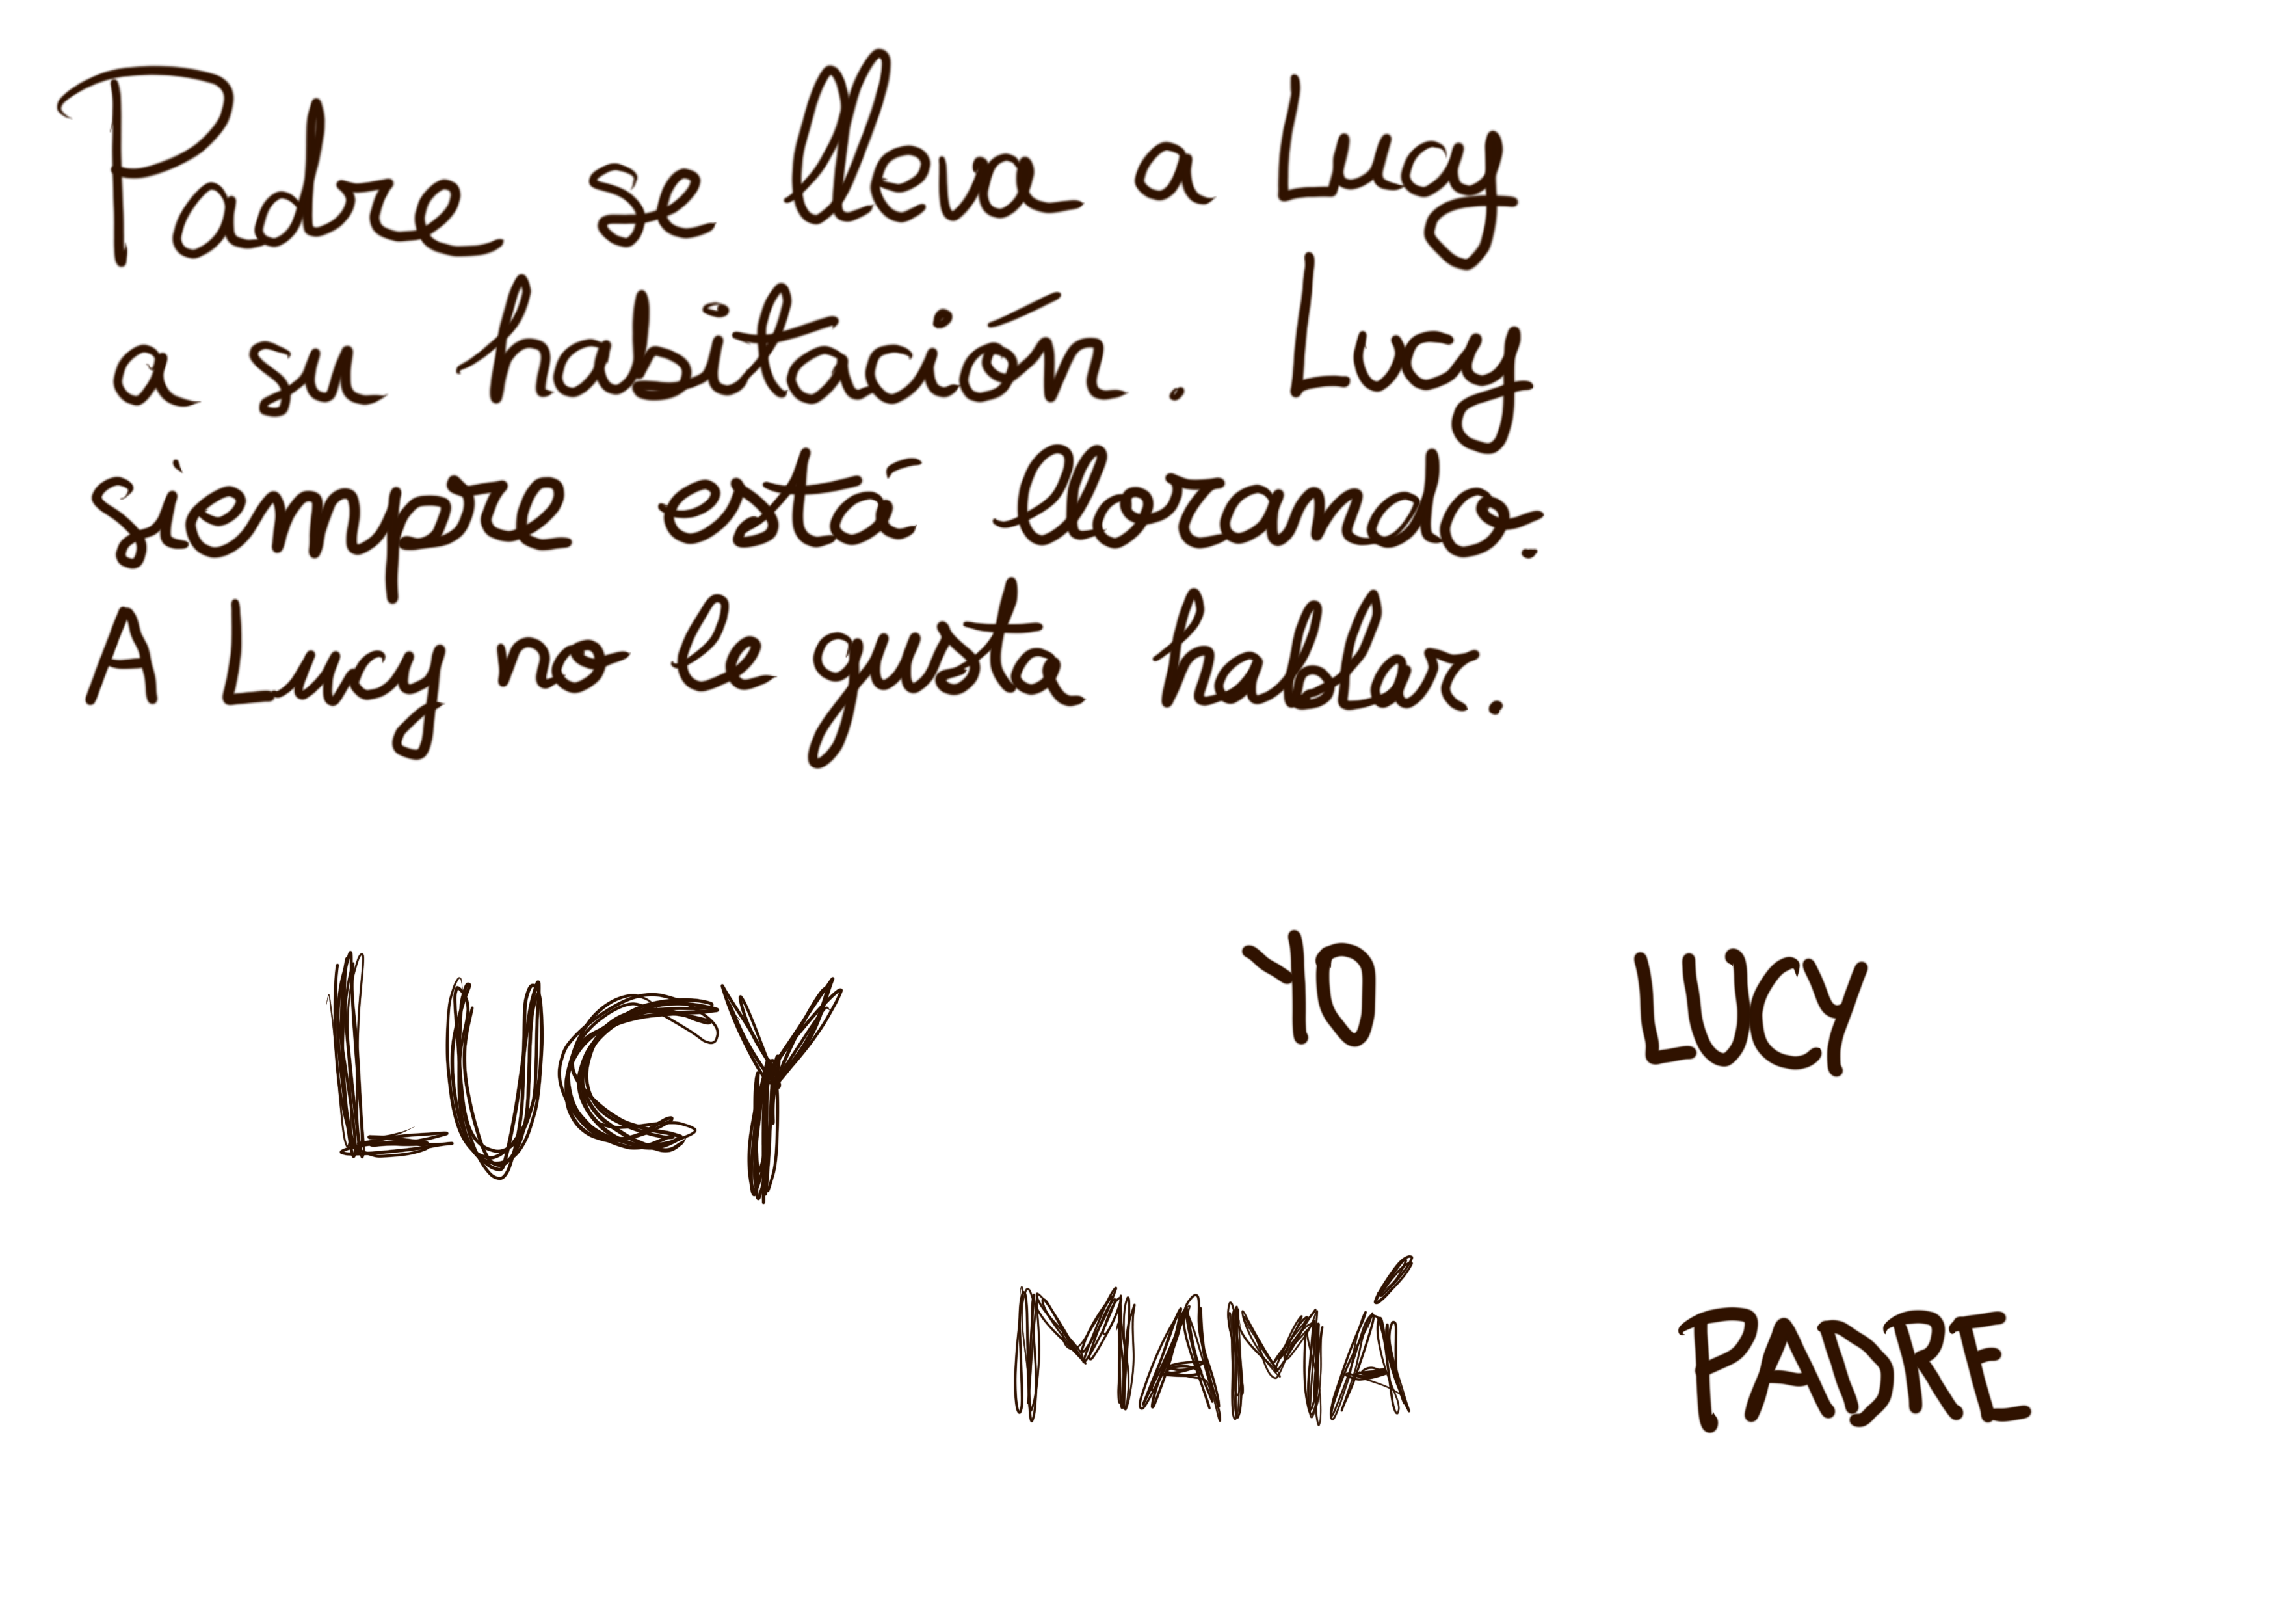 Padre se lleva a Lucy
a su habitación. Lucy
siempre está llorando.
A Lucy no le gusta hablar.
LUCY YO LUCY
MAMÁ PADRE